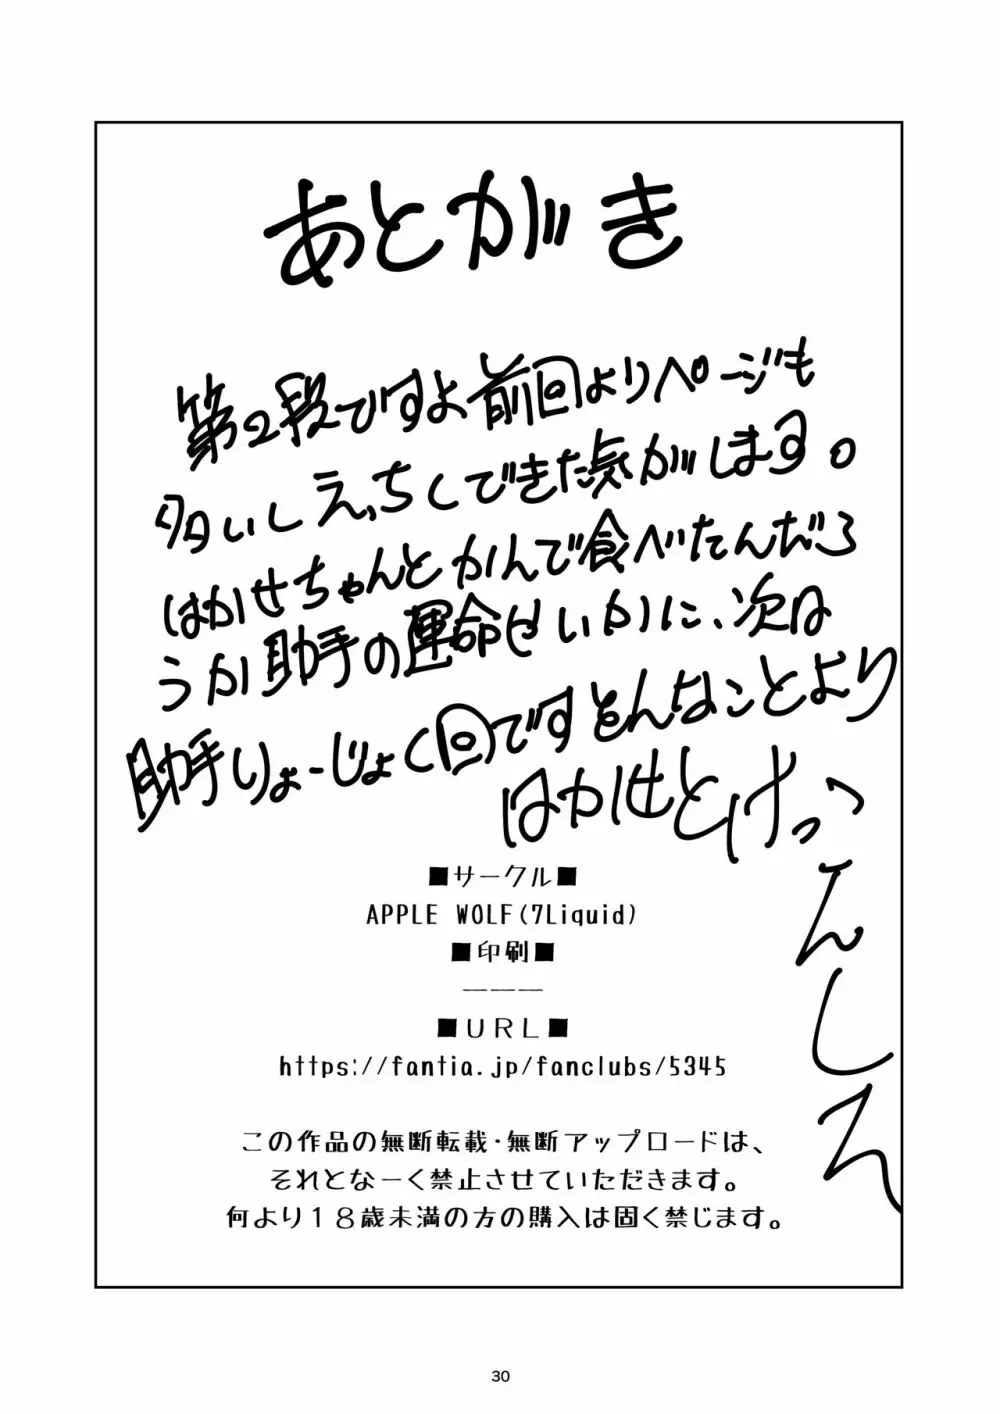 あとがき
第2段ですよ前回よりページも
多いしえっちくできた気がします。
はかせちゃんとかんで食べたんだろ
うか助手の運命せいかに、次は
助手りょーじょく回ですそんなことより
はかせとけっこんしろ
■サークル■
APPLE WOLF(7Liquid)
■印刷■
ーーー
■URL■
https://fantia.jp/fanclubs/5345
この作品の無断転載・無断アップロードは、
それとなーく禁止させていただきます。
何より18歳未満の方の購入は固く禁じます。
30